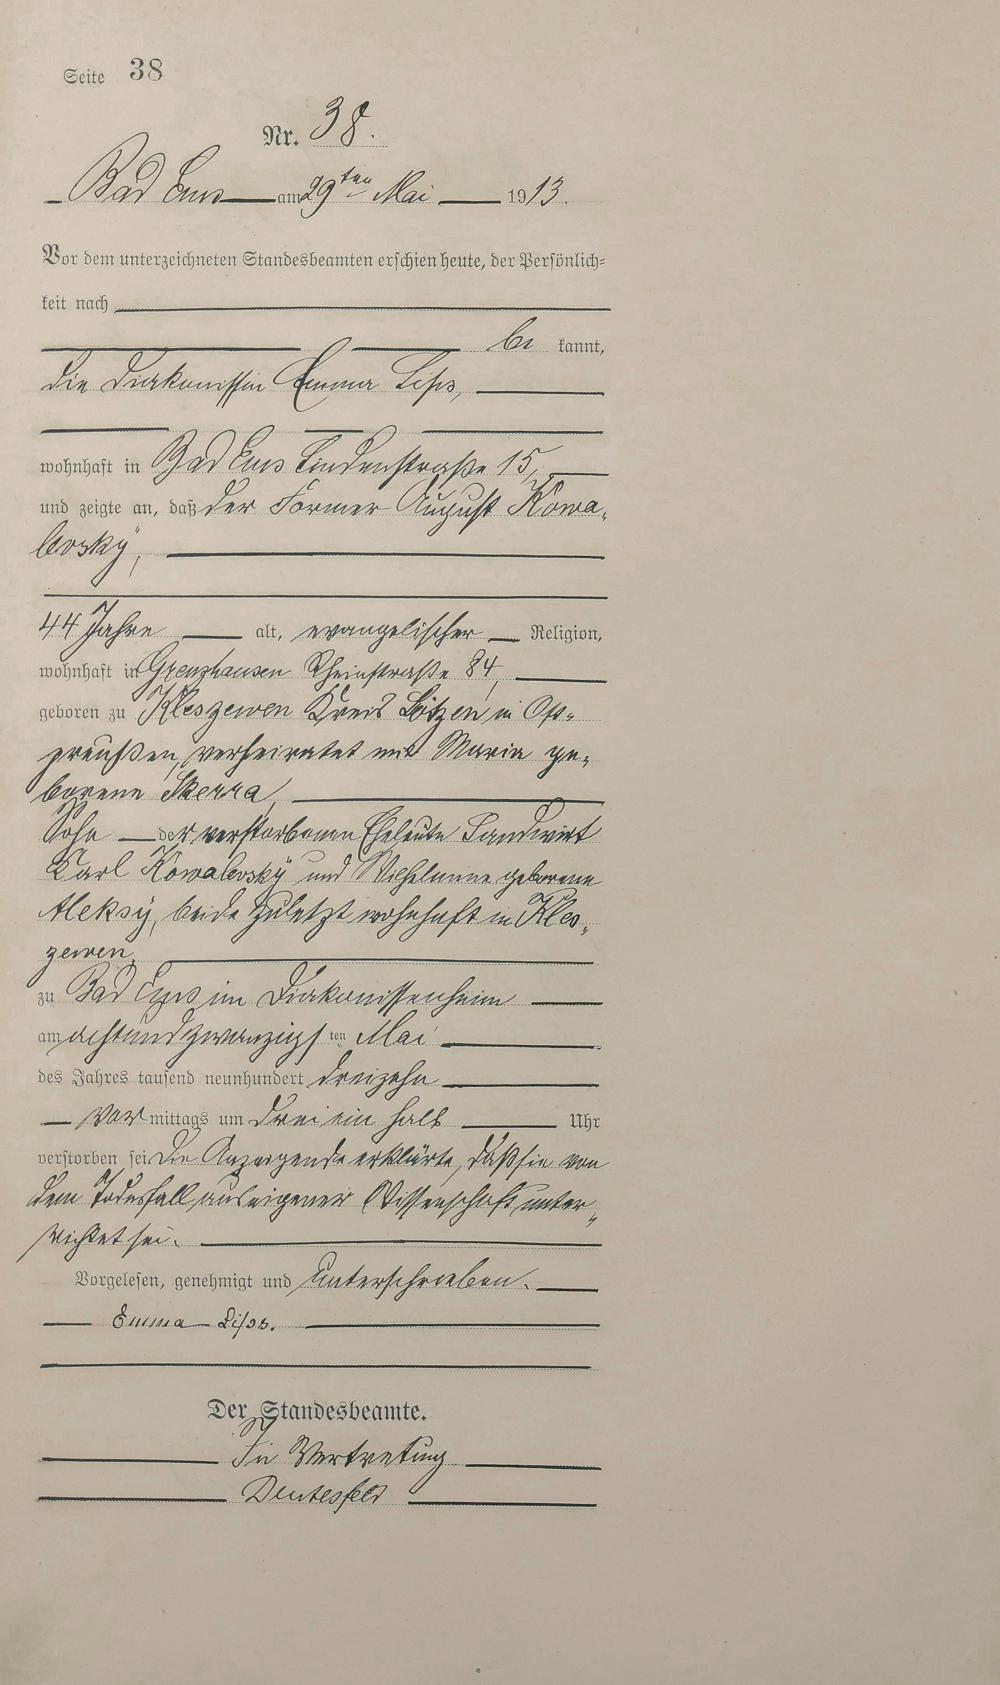 Seite 38
Nr. 38.
Bad Ems am 29ten Mai 1913.
Vor dem unterzeichneten Standesbeamten erschien heute, der Persönlich-
keit nach
be kannt,
die Diakonissin Emma Lips,
wohnhaft in Bad Ems Lindenstraße 15,
und zeigte an, daß der Former August Kowa-
levsky,
44 Jahre alt, evangelischer Religion,
wohnhaft in Grenzhausen Rheinstraße 84,
geboren zu Kleszewen Kreis Lötzen in Ost-
preußen, verheiratet mit Maria ge-
borene Skerra,
Sohn der verstorbenen Eheleute Landwirt
Karl Kowalevsky und Wilhelmine geborene
Aleksy, beide zuletzt wohnhaft in Kles-
zewen,
zu Bad Ems im Diakonissenheim
am achtundzwanzigsten Mai
des Jahres tausend neunhundert dreizehn
Vor mittags um drei ein halb Uhr
verstorben sei. Die Anzeigende erklärte, daß sie von
dem Todesfall aus eigener Wissenschaft unter-
richtet sei.
Vorgelesen, genehmigt und unterschrieben.
Emma Lips.
Der Standesbeamte.
In Vertretung